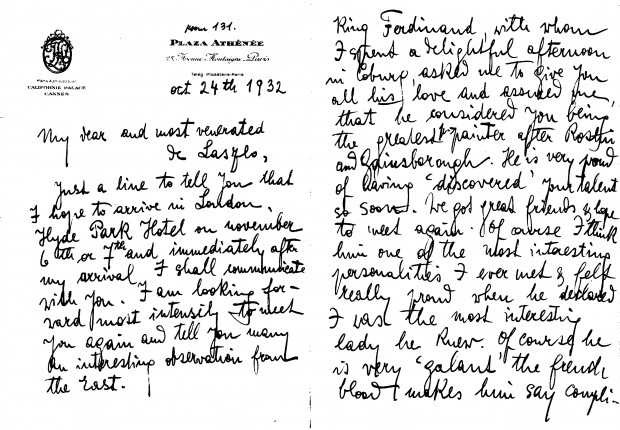 room 131.
PLAZA ATHÉNÉE
25, Avenue Montaigne, Paris
CALIFORNIE PALACE
CANNES
oct 24th 1932
My dear and most venerated
de Laszlo,
Just a line to tell you that
I hope to arrive in London.
Hyde Park Hotel on november
6th or 7th and immediately after
my arrival I shall communicate
with you. I am looking for-
vard most intensily to meet
you again and tell you many
an interesting observation from
the East.
King Ferdinand, with whom
I spent a delightful afternoon
in Coburg, asked me to give you
all his love and assured me,
that he considered you being
the greatest painter after Roslin
and Gainsborough. He is very proud
of having "discovered" your talent
so soon. We got great friends & hope
to meet again. Of course I think
him one of the most interesting
personalities I ever met & felt
really proud when he declared
I was the most interesting
lady he knew. Of course he
is very "galant" the french
blood makes him say compli-